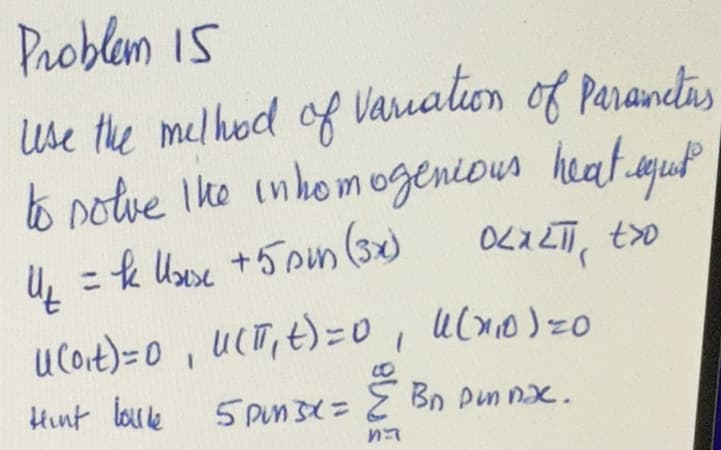 Problem 15
Use the method of Variation of Parameters
to solve the inhomogenious heat equt°
u_t = k u_xx + 5 sin (3x) 0<x<π, t>0
u(0,t)=0 , u(π,t)=0 , u(x,0)=0
Hint 5 sin 3x = ∞ Σ n=1 Bn sin nx.